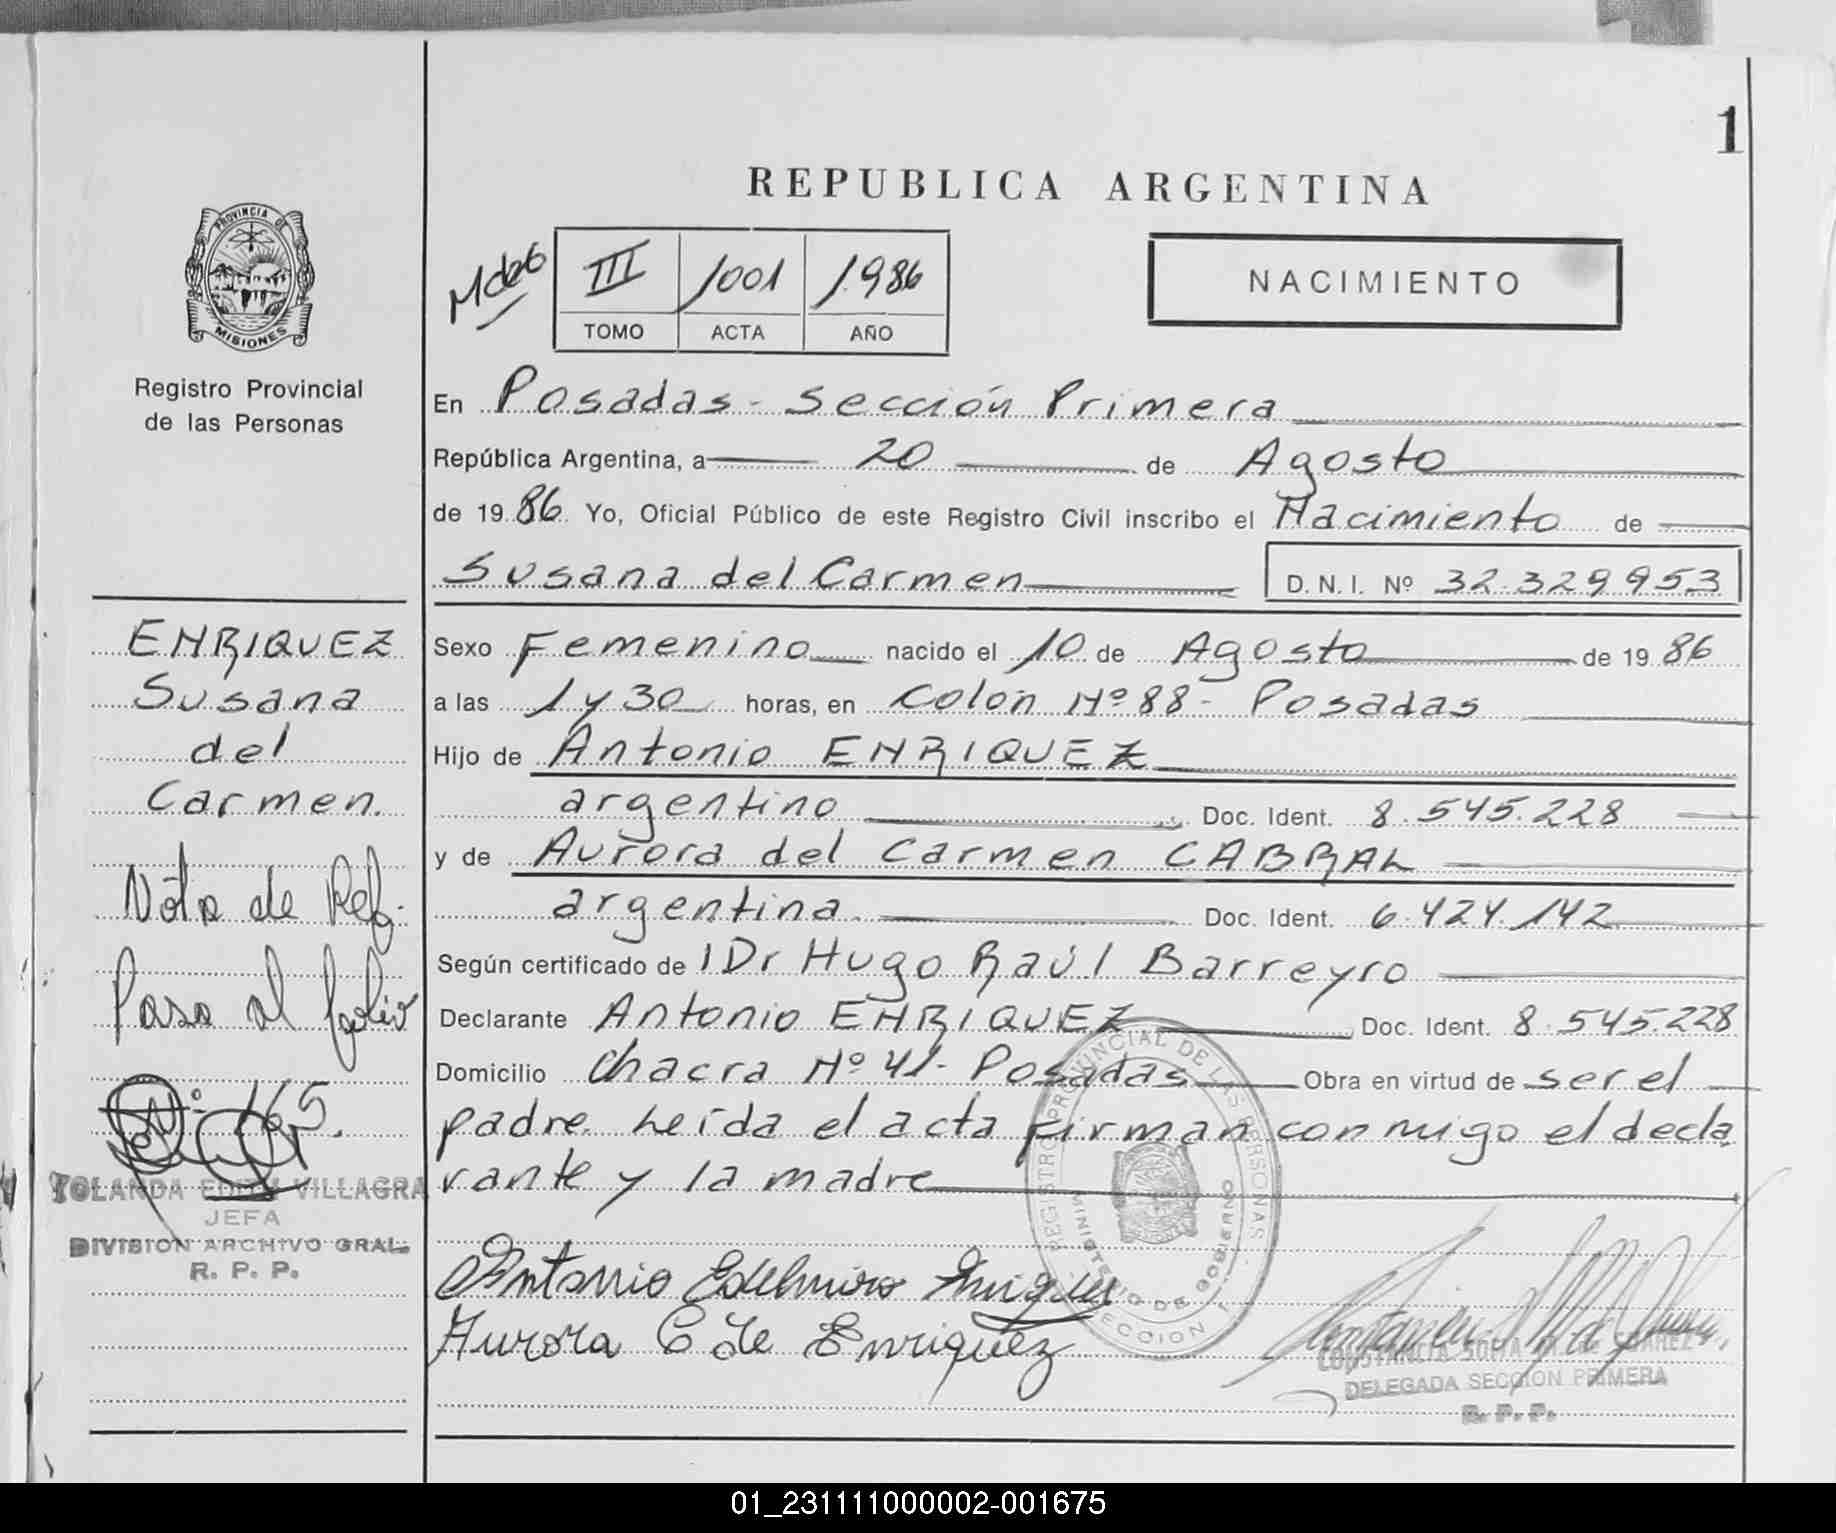 1
REPUBLICA ARGENTINA
PROVINCIA DE
MISIONES
Registro Provincial
de las Personas
III 1001 1.986
TOMO ACTA AÑO
NACIMIENTO
En Posadas - Sección Primera
República Argentina, a 20 de Agosto
de 1986 Yo, Oficial Público de este Registro Civil inscribo el Nacimiento de
Susana del Carmen D.N.I. Nº 32.329.953
Sexo Femenino nacido el 10 de Agosto de 1986
a las 1 y 30 horas, en Colón Nº 88 - Posadas
Hijo de Antonio ENRIQUEZ
argentino Doc. Ident. 8.545.228
y de Aurora del Carmen CABRAL
argentina Doc. Ident. 6.424.142
Según certificado de l Dr Hugo Raúl Barreyro
Declarante Antonio ENRIQUEZ Doc. Ident. 8.545.228
Domicilio Chacra Nº 41 - Posadas Obra en virtud de ser el
padre. Leída el acta firman conmigo el decla
rante y la madre
ENRIQUEZ
Susana
del
Carmen.
Nota de Ref.
Pasa al folio
Nº 165.
YOLANDA EDITH VILLAGRA
JEFA
DIVISION ARCHIVO GRAL.
R. P. P.
REGISTRO PROVINCIAL DE LAS PERSONAS
MINISTERIO DE GOBIERNO
SECCION 1
Antonio Edelmiro Enriquez
Aurora C de Enriquez
CONSTANCIA SOTA M. de SUAREZ
DELEGADA SECCION PRIMERA
R. P. P.
01_231111000002-001675